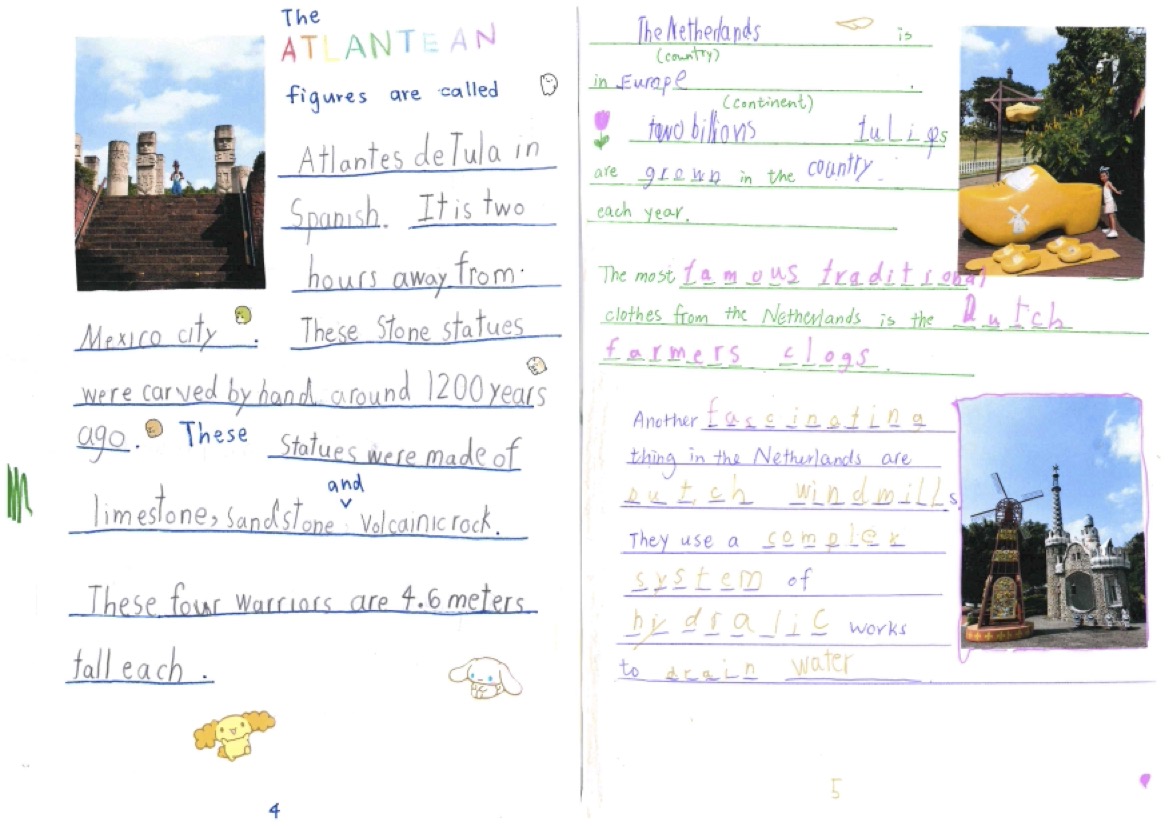 The
ATLANTEAN
figures are called
Atlantes de Tula in
Spanish. It is two
hours away from.
Mexico city .
These Stone statues
were carved by hand around 1200 years
ago. These Statues were made of
and
limestone, Sandstone Volcainic rock.
These four warriors are 4.6 meters
tall each .
4
The Netherlands is
(country)
in Europe .
(continent)
two billions tulips
are grown in the country.
each year.
The most famous traditional
clothes from the Netherlands is the Dutch
farmers clogs.
Another fascinating
thing in the Netherlands are
Dutch windmills
They use a complex
system of
hydralic works
to drain water
5